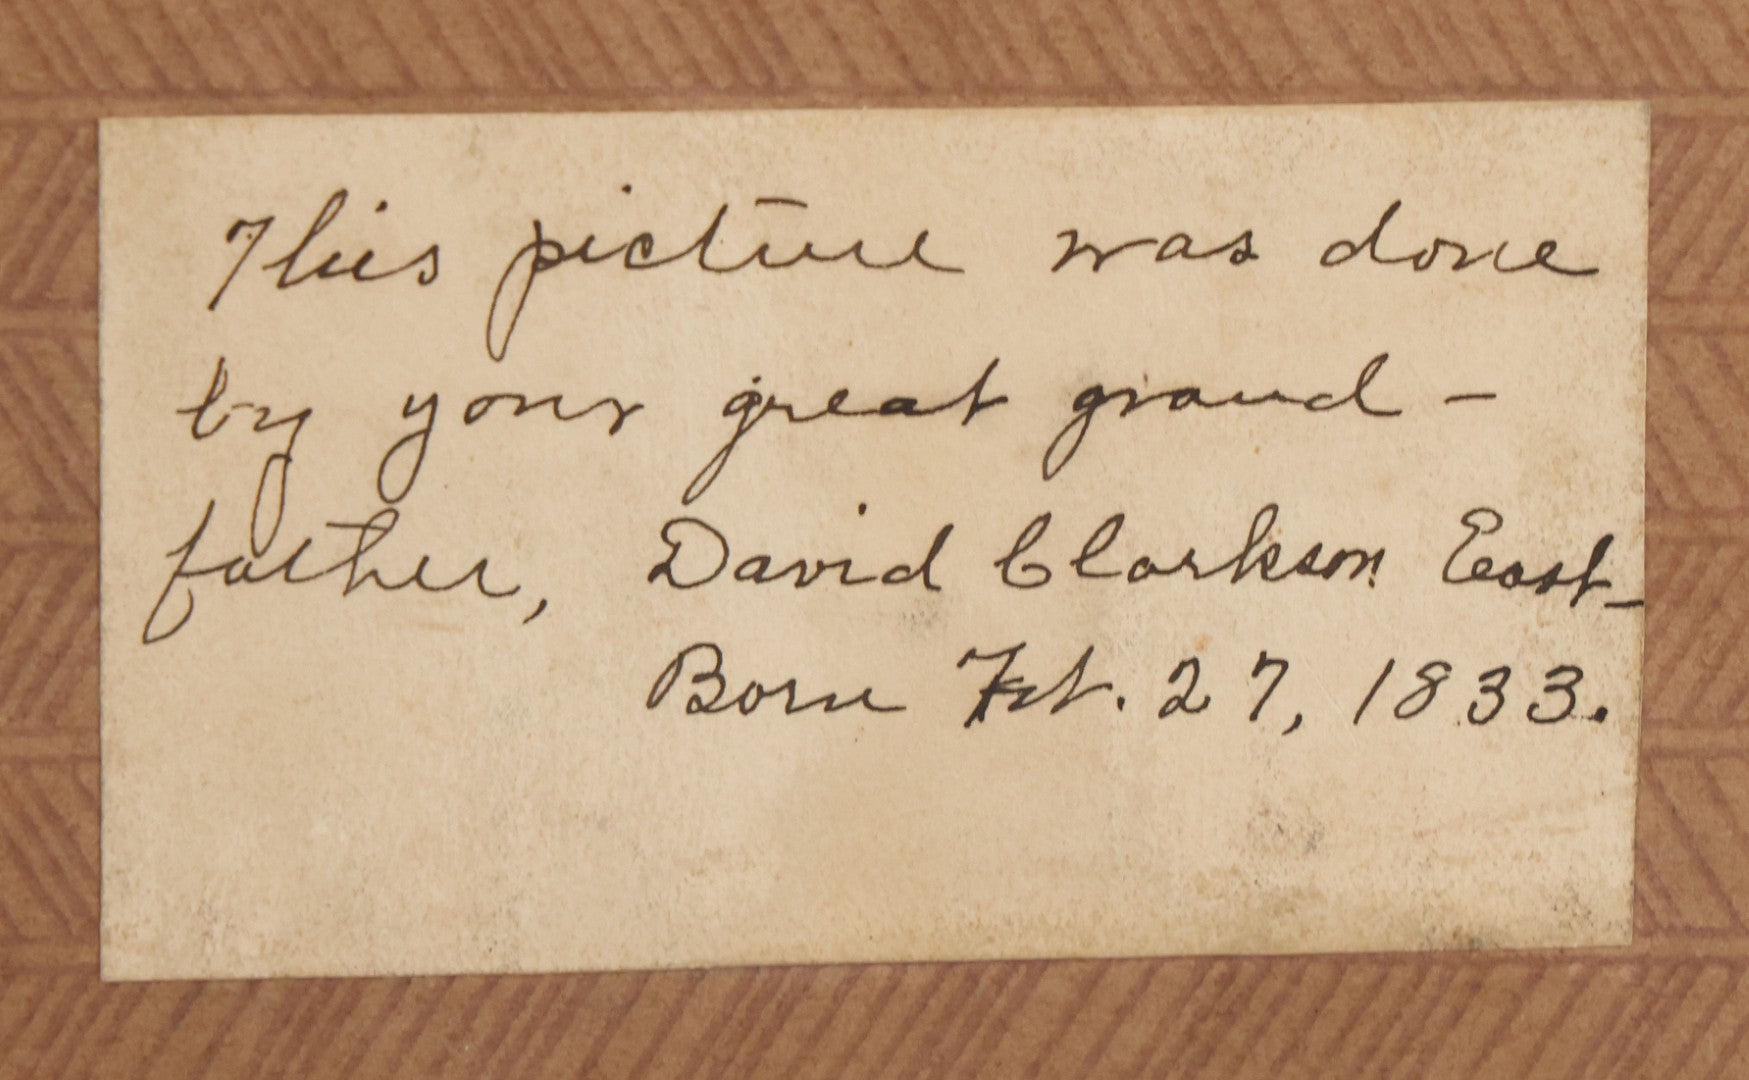 This picture was done
by your great grand-
father, David Clarkson East_
Born Feb. 27, 1833.